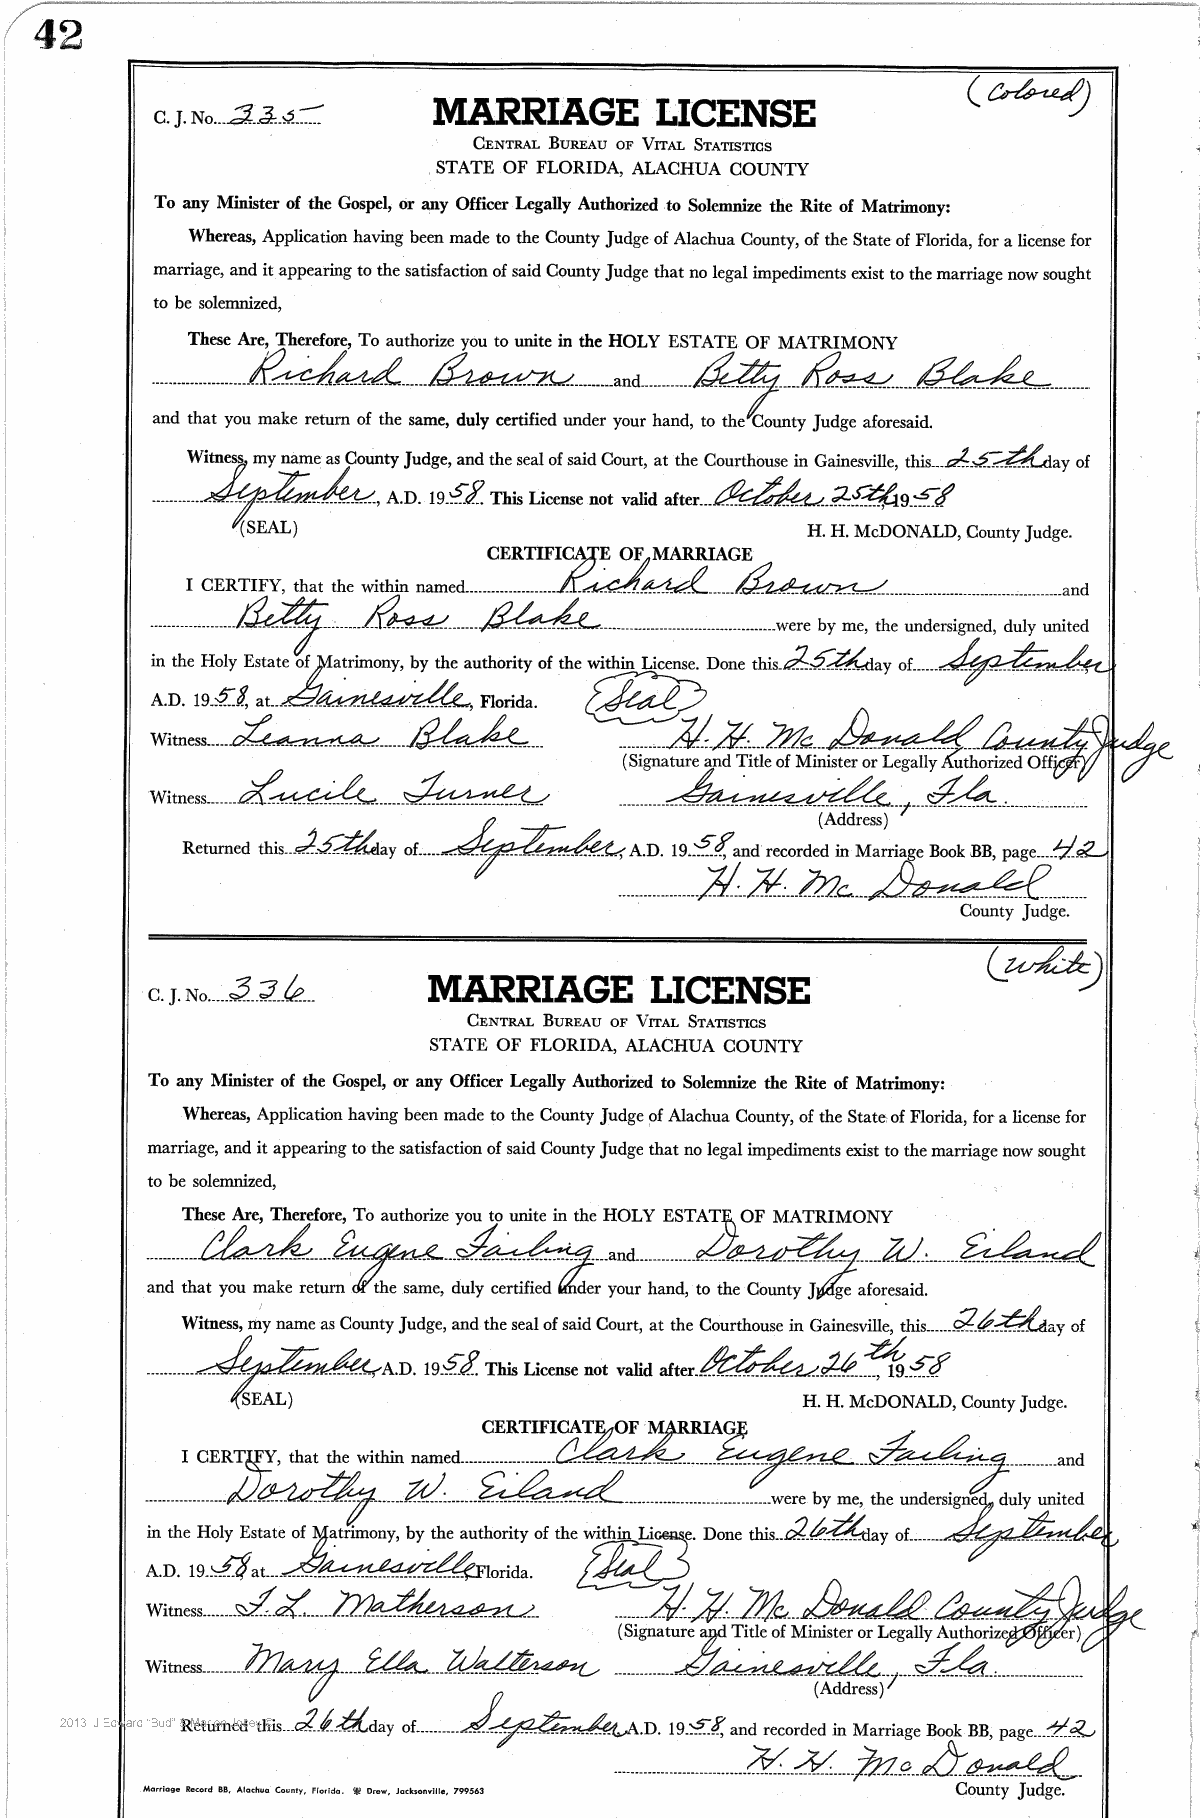 42
(Colored)
C. J. No. 335
MARRIAGE LICENSE
CENTRAL BUREAU OF VITAL STATISTICS
STATE OF FLORIDA, ALACHUA COUNTY
To any Minister of the Gospel, or any Officer Legally Authorized to Solemnize the Rite of Matrimony:
Whereas, Application having been made to the County Judge of Alachua County, of the State of Florida, for a license for
marriage, and it appearing to the satisfaction of said County Judge that no legal impediments exist to the marriage now sought
to be solemnized,
These Are, Therefore, To authorize you to unite in the HOLY ESTATE OF MATRIMONY
Richard Brown and Betty Ross Blake
and that you make return of the same, duly certified under your hand, to the County Judge aforesaid.
Witness, my name as County Judge, and the seal of said Court, at the Courthouse in Gainesville, this 25th day of
September, A.D. 1958. This License not valid after October 25th, 1958
(SEAL) H. H. McDONALD, County Judge.
CERTIFICATE OF MARRIAGE
I CERTIFY, that the within named Richard Brown and
Betty Ross Blake were by me, the undersigned, duly united
in the Holy Estate of Matrimony, by the authority of the within License. Done this 25th day of September
A.D. 1958, at Gainesville, Florida. (Seal)
Witness Leanna Blake H. H. McDonald County Judge
(Signature and Title of Minister or Legally Authorized Officer)
Witness Lucile Turner Gainesville, Fla.
(Address)
Returned this 25th day of September, A.D. 1958, and recorded in Marriage Book BB, page 42
H. H. McDonald
County Judge.
(White)
C. J. No. 336
MARRIAGE LICENSE
CENTRAL BUREAU OF VITAL STATISTICS
STATE OF FLORIDA, ALACHUA COUNTY
To any Minister of the Gospel, or any Officer Legally Authorized to Solemnize the Rite of Matrimony:
Whereas, Application having been made to the County Judge of Alachua County, of the State of Florida, for a license for
marriage, and it appearing to the satisfaction of said County Judge that no legal impediments exist to the marriage now sought
to be solemnized,
These Are, Therefore, To authorize you to unite in the HOLY ESTATE OF MATRIMONY
Clark Eugene Failing and Dorothy W. Eiland
and that you make return of the same, duly certified under your hand, to the County Judge aforesaid.
Witness, my name as County Judge, and the seal of said Court, at the Courthouse in Gainesville, this 26th day of
September, A.D. 1958. This License not valid after October 26th, 1958
(SEAL) H. H. McDONALD, County Judge.
CERTIFICATE OF MARRIAGE
I CERTIFY, that the within named Clark Eugene Failing and
Dorothy W. Eiland were by me, the undersigned, duly united
in the Holy Estate of Matrimony, by the authority of the within License. Done this 26th day of September
A.D. 1958, at Gainesville, Florida. (Seal)
Witness T. L. Matherson H. H. McDonald County Judge
(Signature and Title of Minister or Legally Authorized Officer)
Witness Mary Ella Walterson Gainesville, Fla.
(Address)
2013 J Edward "Bud" &
Returned this 26th day of September, A.D. 1958, and recorded in Marriage Book BB, page 42
H. H. McDonald
Marriage Record BB, Alachua County, Florida. Drew, Jacksonville, 799563
County Judge.